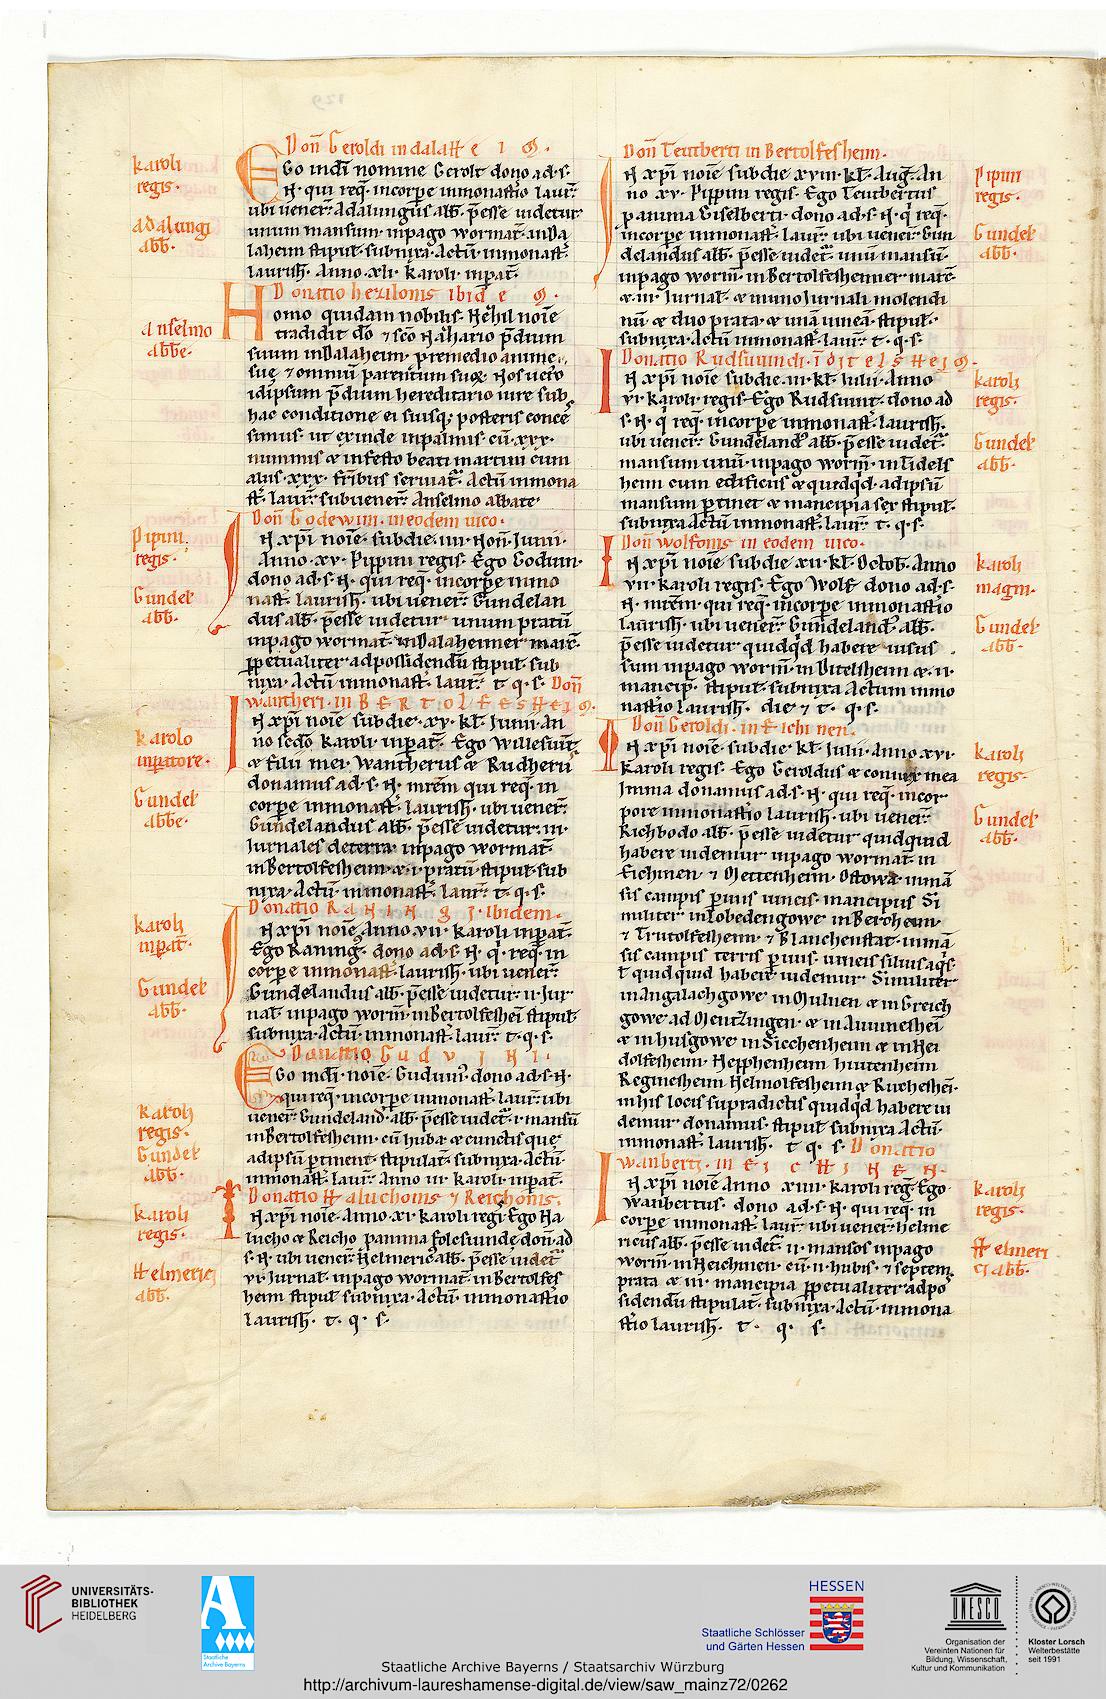 karoli
regis.
adalungi
abb̅.
anselmo
abb̅e.
Pipini.
regis.
Gundel̅
abb̅.
karolo
inp̅atore.
Gundel̅
abb̅e.
karoli
inp̅at̅.
Gundel̅
abb̅.
karoli
regis.
Gundel̅
abb̅.
karoli
regis.
Helmerici
abb̅.
Don̅ Geroldi in dalaHeiM.
EGo in di̅ nomine Gerolt dono ad.s.
N. qui req̅. in corp̅e in monast̅io laur̅.
ubi uener̅. Adalungus abb̅. p̅esse uidetur
unum mansum. in pago wormat̅. in Da
laheim stipul̅. subnixa. Actu̅ in monast̅.
laurish̅. Anno .xli. karoli inp̅at̅.
Donatio herilonis ibide M.
Homo quidam nobilis. Heril noi̅e
tradidit d̅o ⁊ sc̅o Nazhario p̅dium
suum in Dalaheim. p̅ remedio anime
sue ⁊ omniu̅ parentum suoꝝ. Nos uero
id ipsum p̅dium hereditario iure sub
hac conditione ei suisq; posteris conce̅
simus. ut exinde in palmis cu̅ .xxx.
nummis ⁊ in festo beati martini cum
aliis .xxx. fr̅ibus seruiat̅. Actu̅ in mona
st̅. laur̅. sub uener̅. Anselmo abbate.
Don̅ Godewini. in eodem uico.
IN xp̅i noi̅e. sub die .iiii. Non̅. Iunii.
Anno .xv. Pippini regis. Ego Goduin.
dono ad.s. N. qui req̅. in corp̅e in mo
nast̅. laurish̅. ubi uener̅. Gundelan
dus abb̅. p̅esse uidetur unum pratu̅
in pago wormat̅. in Dalaheimer marc̅.
p̅petualiter ad possidendu̅ stipul̅. sub
nixa. Actu̅ in monast̅. laur̅. t. q. s. Don̅
wantheri. in BERtolFESHeiM.
IN xp̅i noi̅e sub die .xv. kl̅. Iunii. An
no sc̅do karoli inp̅at̅. Ego Willesuint̅
⁊ filii mei. Wantherus ⁊ Rudheru̅
donamus ad.s. N. m̅rem qui req̅. in
corp̅e in monast̅. laurish̅. ubi uener̅.
Gundelandus abb̅. p̅esse uidetur. iii.
Iurnales de terra in pago wormat̅.
in Bertolfesheim. ⁊ .i. pratu̅. stipul̅. sub
nixa. Actu̅ in monast̅. laur̅. t. q. s.
Donatio RaNiNgi. ibidem.
IN xp̅i noi̅e. Anno .xvii. karoli inp̅at̅.
Ego Raning. dono ad.s. N. q̅ req̅. in
corp̅e in monast̅. laurish̅. ubi uener̅.
Gundelandus abb̅. p̅esse uidetur. ii. Iur
nal̅. in pago worm̅. in Bertolfeshei̅ stipul̅.
subnixa. Actu̅ in monast̅. laur̅. t. q. s.
Donatio GuduiNi.
EGo in di̅. noi̅e. Guduin⁹ dono ad.s. N.
qui req̅. in corp̅e in monast̅. laur̅. ubi
uener̅. Gundeland⁹ abb̅. p̅esse uidet̅. i. mansu̅
in Bertolfesheim. cu̅ huba. ⁊ cunctis que
ad ipsu̅ p̅tinent. stipulat̅. subnixa. Actu̅
in monast̅. laur̅. Anno iii. karoli inp̅at̅.
Donatio Haluchonis ⁊ Reichonis.
IN xp̅i noi̅e. Anno .xi. karoli regi̅. Ego Ha
lucho ⁊ Reicho pa̅nima folesuinde don̅. ad
s. N. ubi uener̅. Helmeric⁹ abb̅. p̅esse uidet̅
vi. Iurnal̅. in pago wormat̅. in Bertolfes
heim stipul̅. subnixa. Actu̅. in monast̅io
laurish̅. t. q. s.
Don̅ Teutberti in Bertolfesheim.
IN xp̅i noi̅e sub die .xviii. kl̅. Aug̅. An
no .xv. Pippini regis. Ego Teutbertus
p anima Giselberti. dono ad.s. N. q̅ req̅.
in corp̅e in monast̅. laur̅. ubi uener̅. Gun
delandus abb̅. p̅esse uidet̅. unu̅ mansu̅.
in pago worm̅. in Bertolfesheimer marc̅.
⁊ .iii. Iurnal̅. ⁊ in uno Iurnali molendi
nu̅. ⁊ duo prata. ⁊ una̅ uinea̅. stipul̅.
subnixa. Actu̅ in monast̅. laur̅. t. q. s.
Donatio Rudsuundi. i̅ ditelsHeiM.
IN xp̅i noi̅e sub die .iii. kl̅. Iulii. Anno
vi. karoli regis. Ego Rudsuint. dono ad
s. N. q̅ req̅. in corp̅e in monast̅. laurish̅.
ubi uener̅. Gundeland⁹ abb̅. p̅esse uidet̅.
mansum unu̅. in pago worm̅. in Tidels
heim cum edificiis ⁊ quidq̅d. ad ipsu̅
mansum p̅tinet ⁊ mancipia sex stipul̅.
subnixa Actu̅ in monast̅. laur̅. t. q. s.
Don̅ wolfonis in eodem uico.
IN xp̅i noi̅e sub die .xii. kl̅. Octob̅. Anno
vii. karoli regis. Ego Wolf dono ad.s.
N. m̅rem. qui req̅. in corp̅e in monast̅io
laurish̅. ubi uener̅. Gundeland⁹ abb̅.
p̅esse uidetur quidq̅d habere uisus
sum in pago worm̅. in Ditelsheim ⁊ .ii.
mancip̅. stipul̅. subnixa Actum in mo
nast̅io laurish̅. die ⁊ t. q. s.
Don̅ Geroldi. in Eichinen.
IN xp̅i noi̅e sub die. kl̅. Iulii. anno .xvi.
karoli regis. Ego Geroldus ⁊ coniux mea
Imma donamus ad.s. N. qui req̅. in cor
pore in monast̅io laurish̅. ubi uener̅.
Richbodo abb̅. p̅esse uidetur quidquid
habere uidemur in pago wormat̅. in
Eichinen ⁊ Mettenheim. Ostowa in ma̅
sis campis p̅tuis uineis. mancipiis Si
militer in lobedengowe in Bercheim.
⁊ Trutolfesheim ⁊ Blanchenstat. in ma̅
sis campis terris p̅tuis. uineis siluis aq̅s.
t̅ quidquid habere uidemur Similiter
in angalachgowe in Mulnen ⁊ in Creich
gowe ad Mentzingen. ⁊ in Auuineshei̅
⁊ in husgowe in Sicchenheim ⁊ in Hei
dolfesheim. Hepphenheim huttenheim
Reginesheim Helmolfesheim ⁊ Ruxheshei̅.
in his locis supradictis quidq̅d habere ui
demur donamus. stipul̅. subnixa Actu̅.
in monast̅. laurish̅. t. q. s. Donatio
wanberti. in EicHiNeN.
IN xp̅i noi̅e Anno .xiiii. karoli reg̅. Ego
wanbertus. dono ad.s. N. qui req̅. in
corp̅e in monast̅. laur̅. ubi uener̅. helme
ricus abb̅. p̅esse uidet̅. ii. mansos in pago
worm̅. in Heichinen. cu̅ .ii. hubis. ⁊ septem
prata ⁊ .iii. mancipia p̅petualiter ad po
sidendu̅ stipulat̅. subnixa. Actu̅. in mona
st̅io laurish̅. t. q. s.
Pipini
regis.
Gundel̅
abb̅.
karoli
regis.
Gundel̅
abb̅.
karoli
magni.
Gundel̅
abb̅.
karoli
regis.
Gundel̅
abb̅.
karoli
regis.
Helmeri
ci abb̅.
UNIVERSITÄTS-
BIBLIOTHEK
HEIDELBERG
Staatliche
Archive Bayerns
HESSEN
Staatliche Schlösser
und Gärten Hessen
UNESCO
Organisation der
Vereinten Nationen für
Bildung, Wissenschaft,
Kultur und Kommunikation
Kloster Lorsch
Welterbestätte
seit 1991
Staatliche Archive Bayerns / Staatsarchiv Würzburg
http://archivum-laureshamense-digital.de/view/saw_mainz72/0262